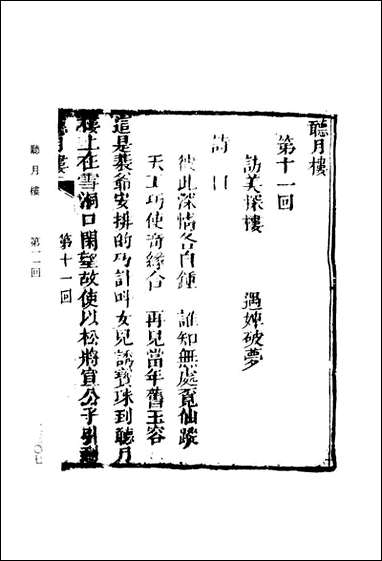 聽月樓
第十一回
訪美探樓　遇婢破夢
詩曰
彼此深情各自鍾　誰知無處覓仙蹤
天工巧使奇緣合　再見當年舊玉容
這是裴爺安排的巧計叫女兒誘寶珠到聽月
樓上在雪洞口閑望故使以松將宣公子引到
聽月樓　第十一回
聽月樓　第十一回